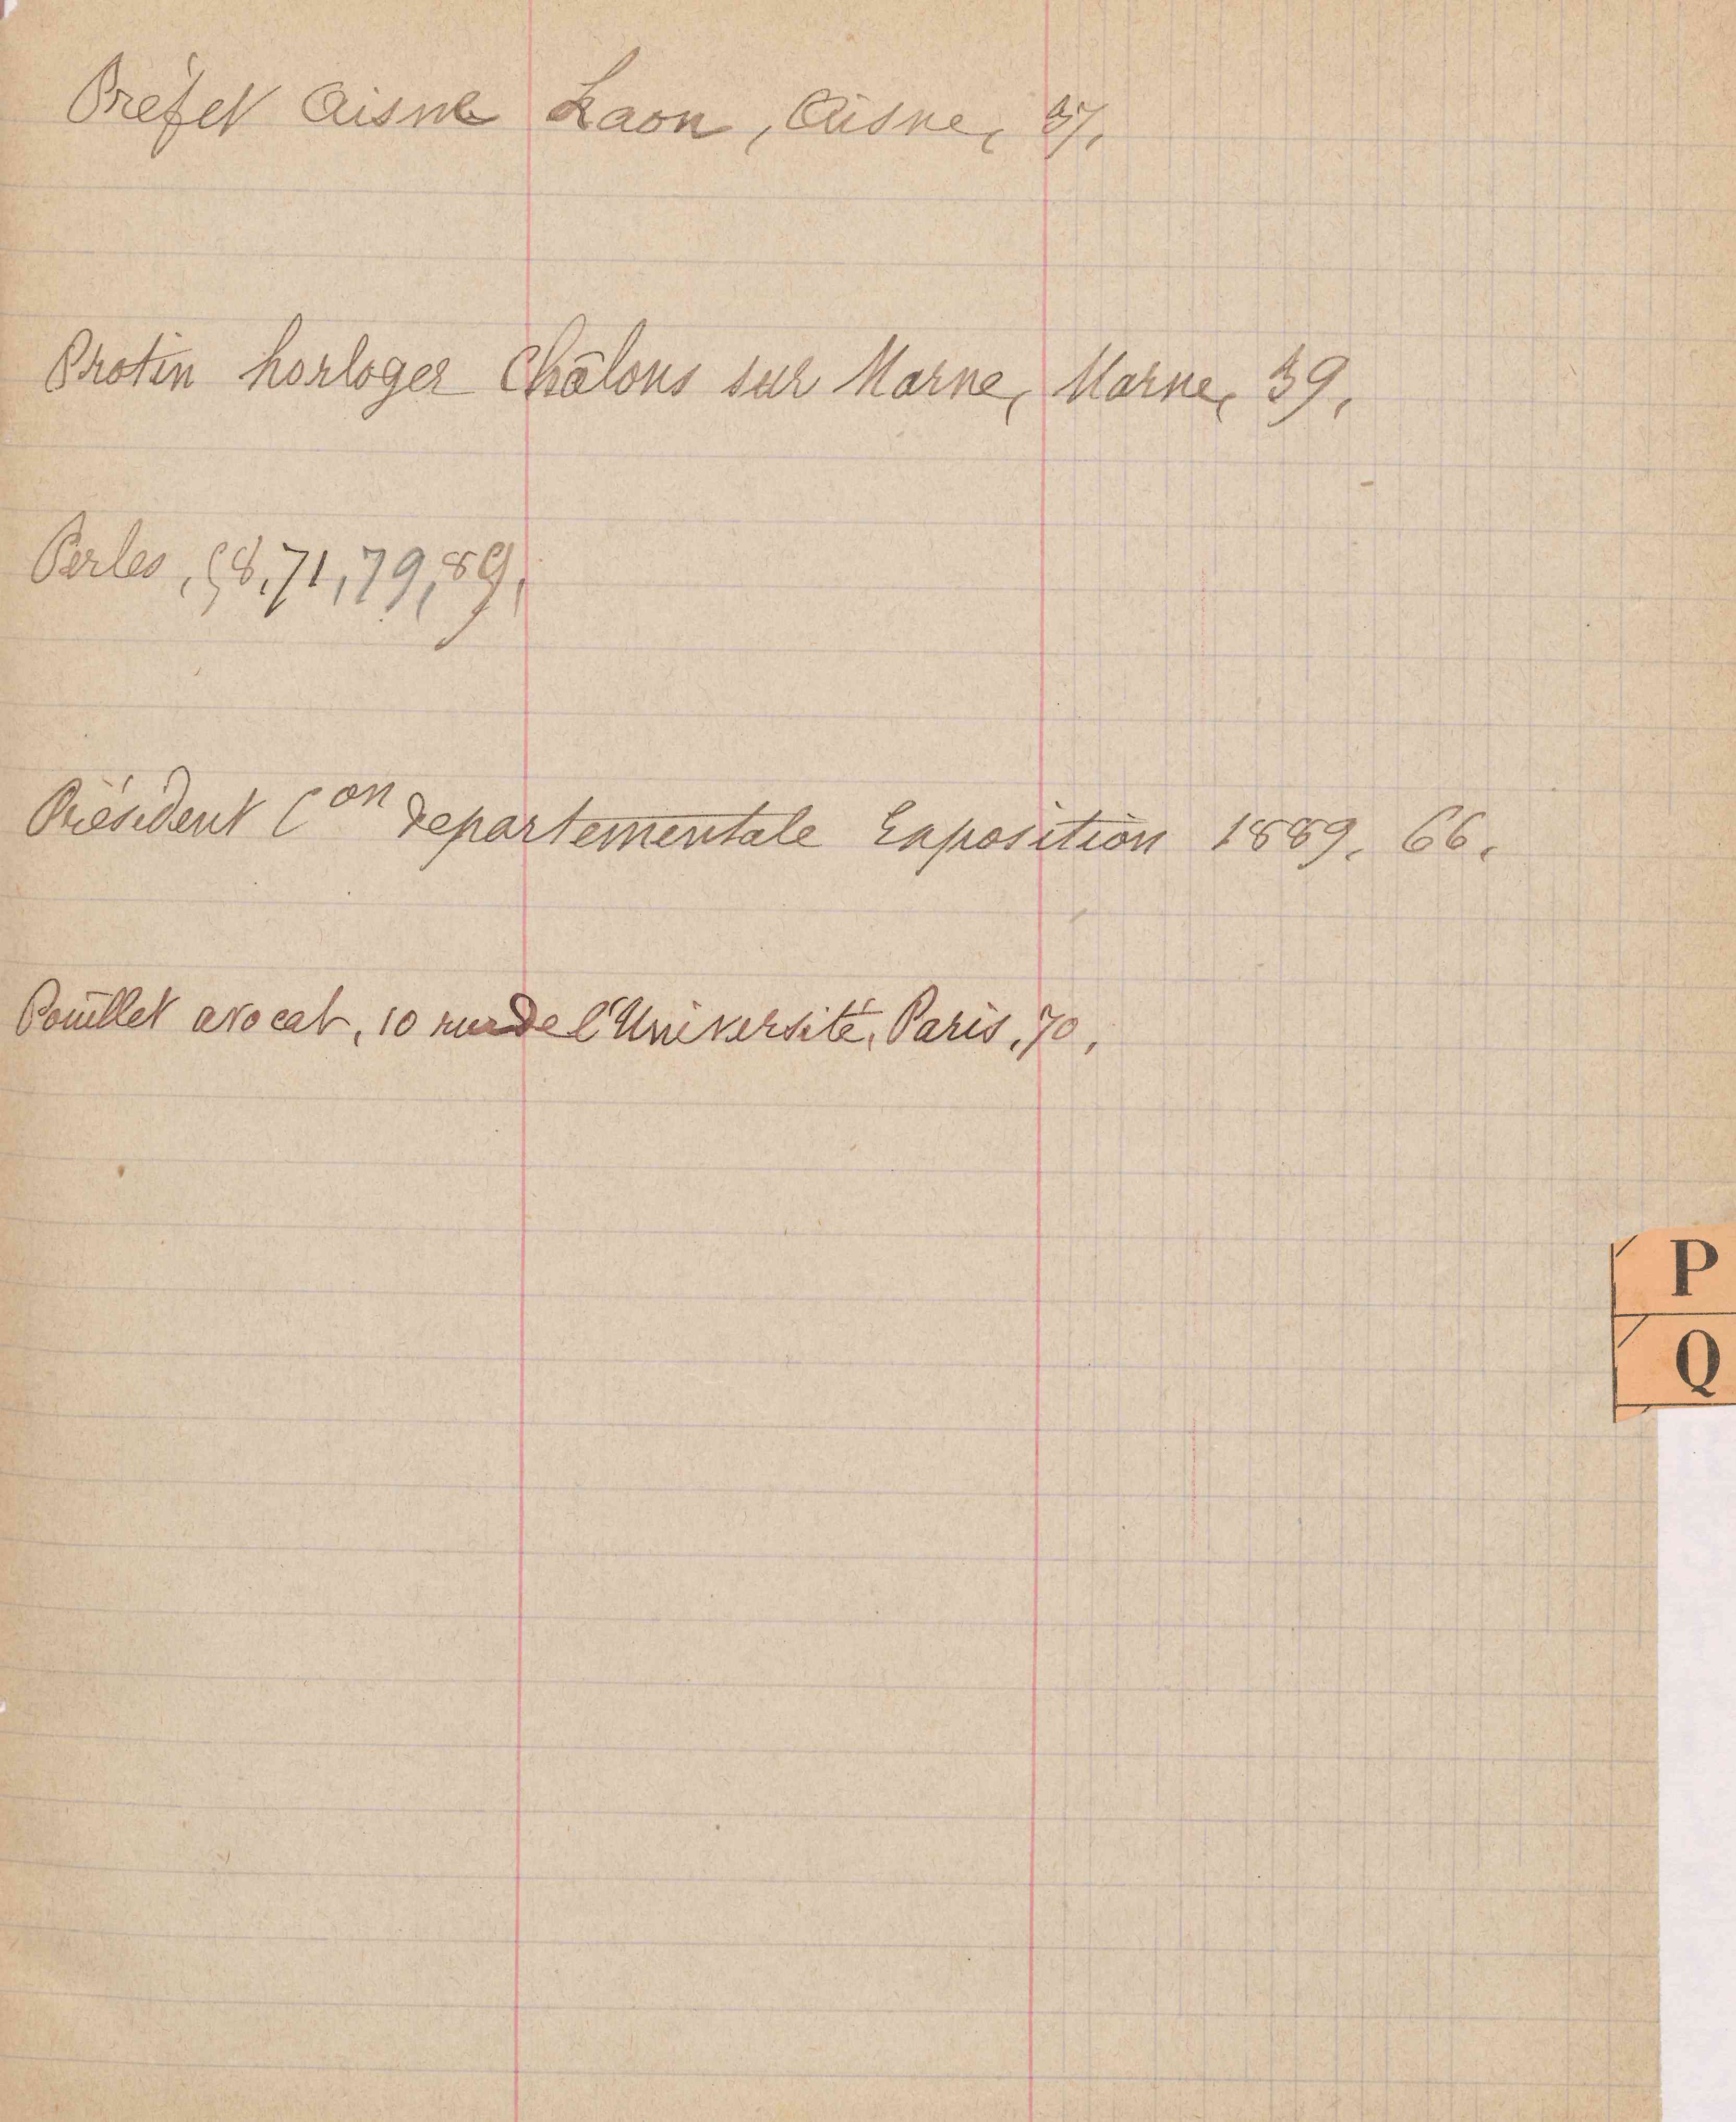 Préfet Aisne Laon, Aisne, 37,
Protin horloger Châlons sur Marne, Marne, 39,
Perles, 68, 71, 79, 89,
Président Con Départementale Exposition 1889, 66,
Pouillet avocat, 10 rue de l'Université, Paris, 70,
P
Q